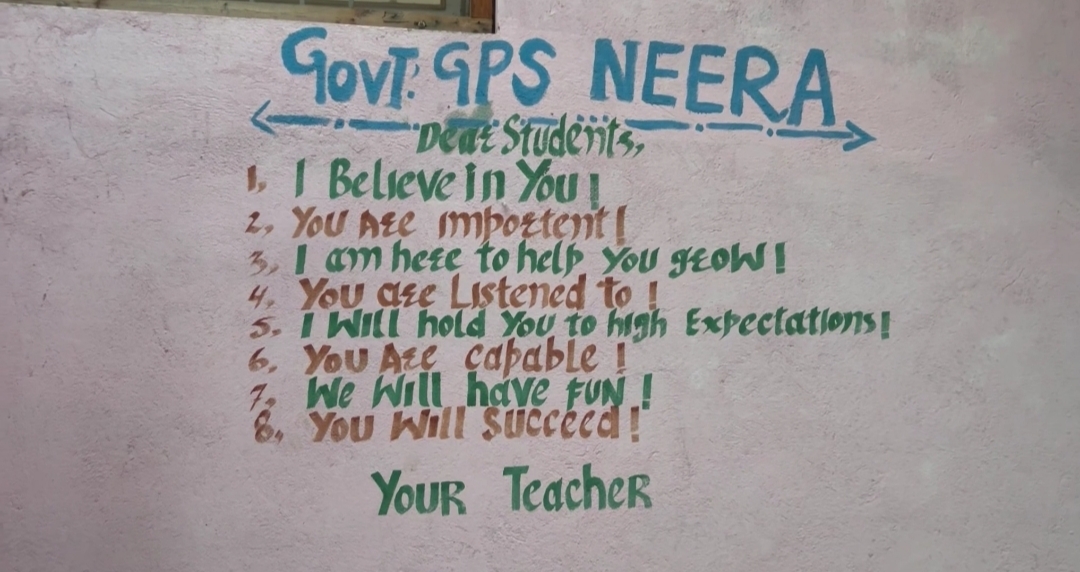 GOVT: GPS NEERA
Dear Students,
1, I Believe in You!
2, You Are importent!
3, I am here to help you grow!
4, You are Listened to !
5, I Will hold You to high Expectations!
6, You Are capable !
7, We Will have FUN !
8, You Will Succeed!
YOUR TeacheR